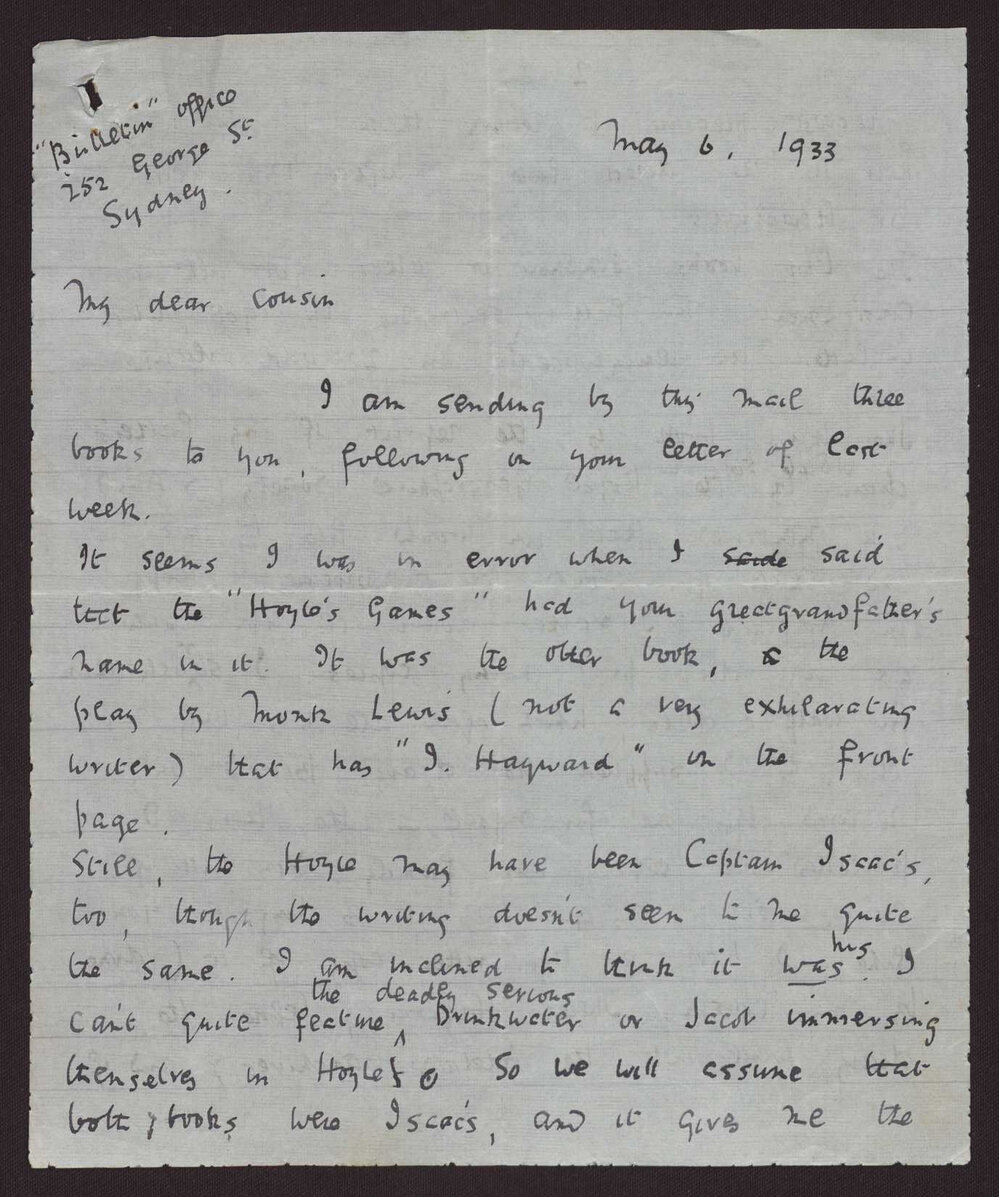 "Bulletin" office
252 George St
Sydney.
May 6, 1933
My dear Cousin
I am sending by this mail three
books to you, following on your letter of last
week.
It seems I was in error when I saide said
that the "Hoyle's Games" had your greatgrandfather's
name in it. It was the other book, a the
play by Monk Lewis (not a very exhilarating
writer) that has "I. Hayward" on the front
page.
Still, the Hoyle may have been Captain Isaac's,
too, though the writing doesn't seem to me quite
the same. I am inclined to think it was his. I
can't quite feature the deadly serious Drinkwater or Jacob immersing
themselves in Hoyle! So we will assume that
both books were Isaac's, and it gives me the